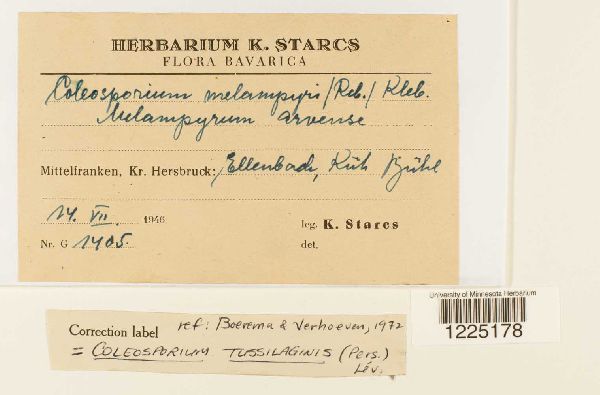 HERBARIUM K. STARCS
FLORA BAVARICA
Coleosporium melampyri /Reb./ Kleb.
Melampyrum arvense
Mittelfranken, Kr. Hersbruck: Ellenbach, Küh Bühl
14. VII. 1946
leg. K. Starcs
Nr. G 1405.
det.
University of Minnesota Herbarium
1225178
Correction label ref: Boerema & Verhoeven, 1972
= COLEOSPORIUM TUSSILAGINIS (Pers.)
Lév.